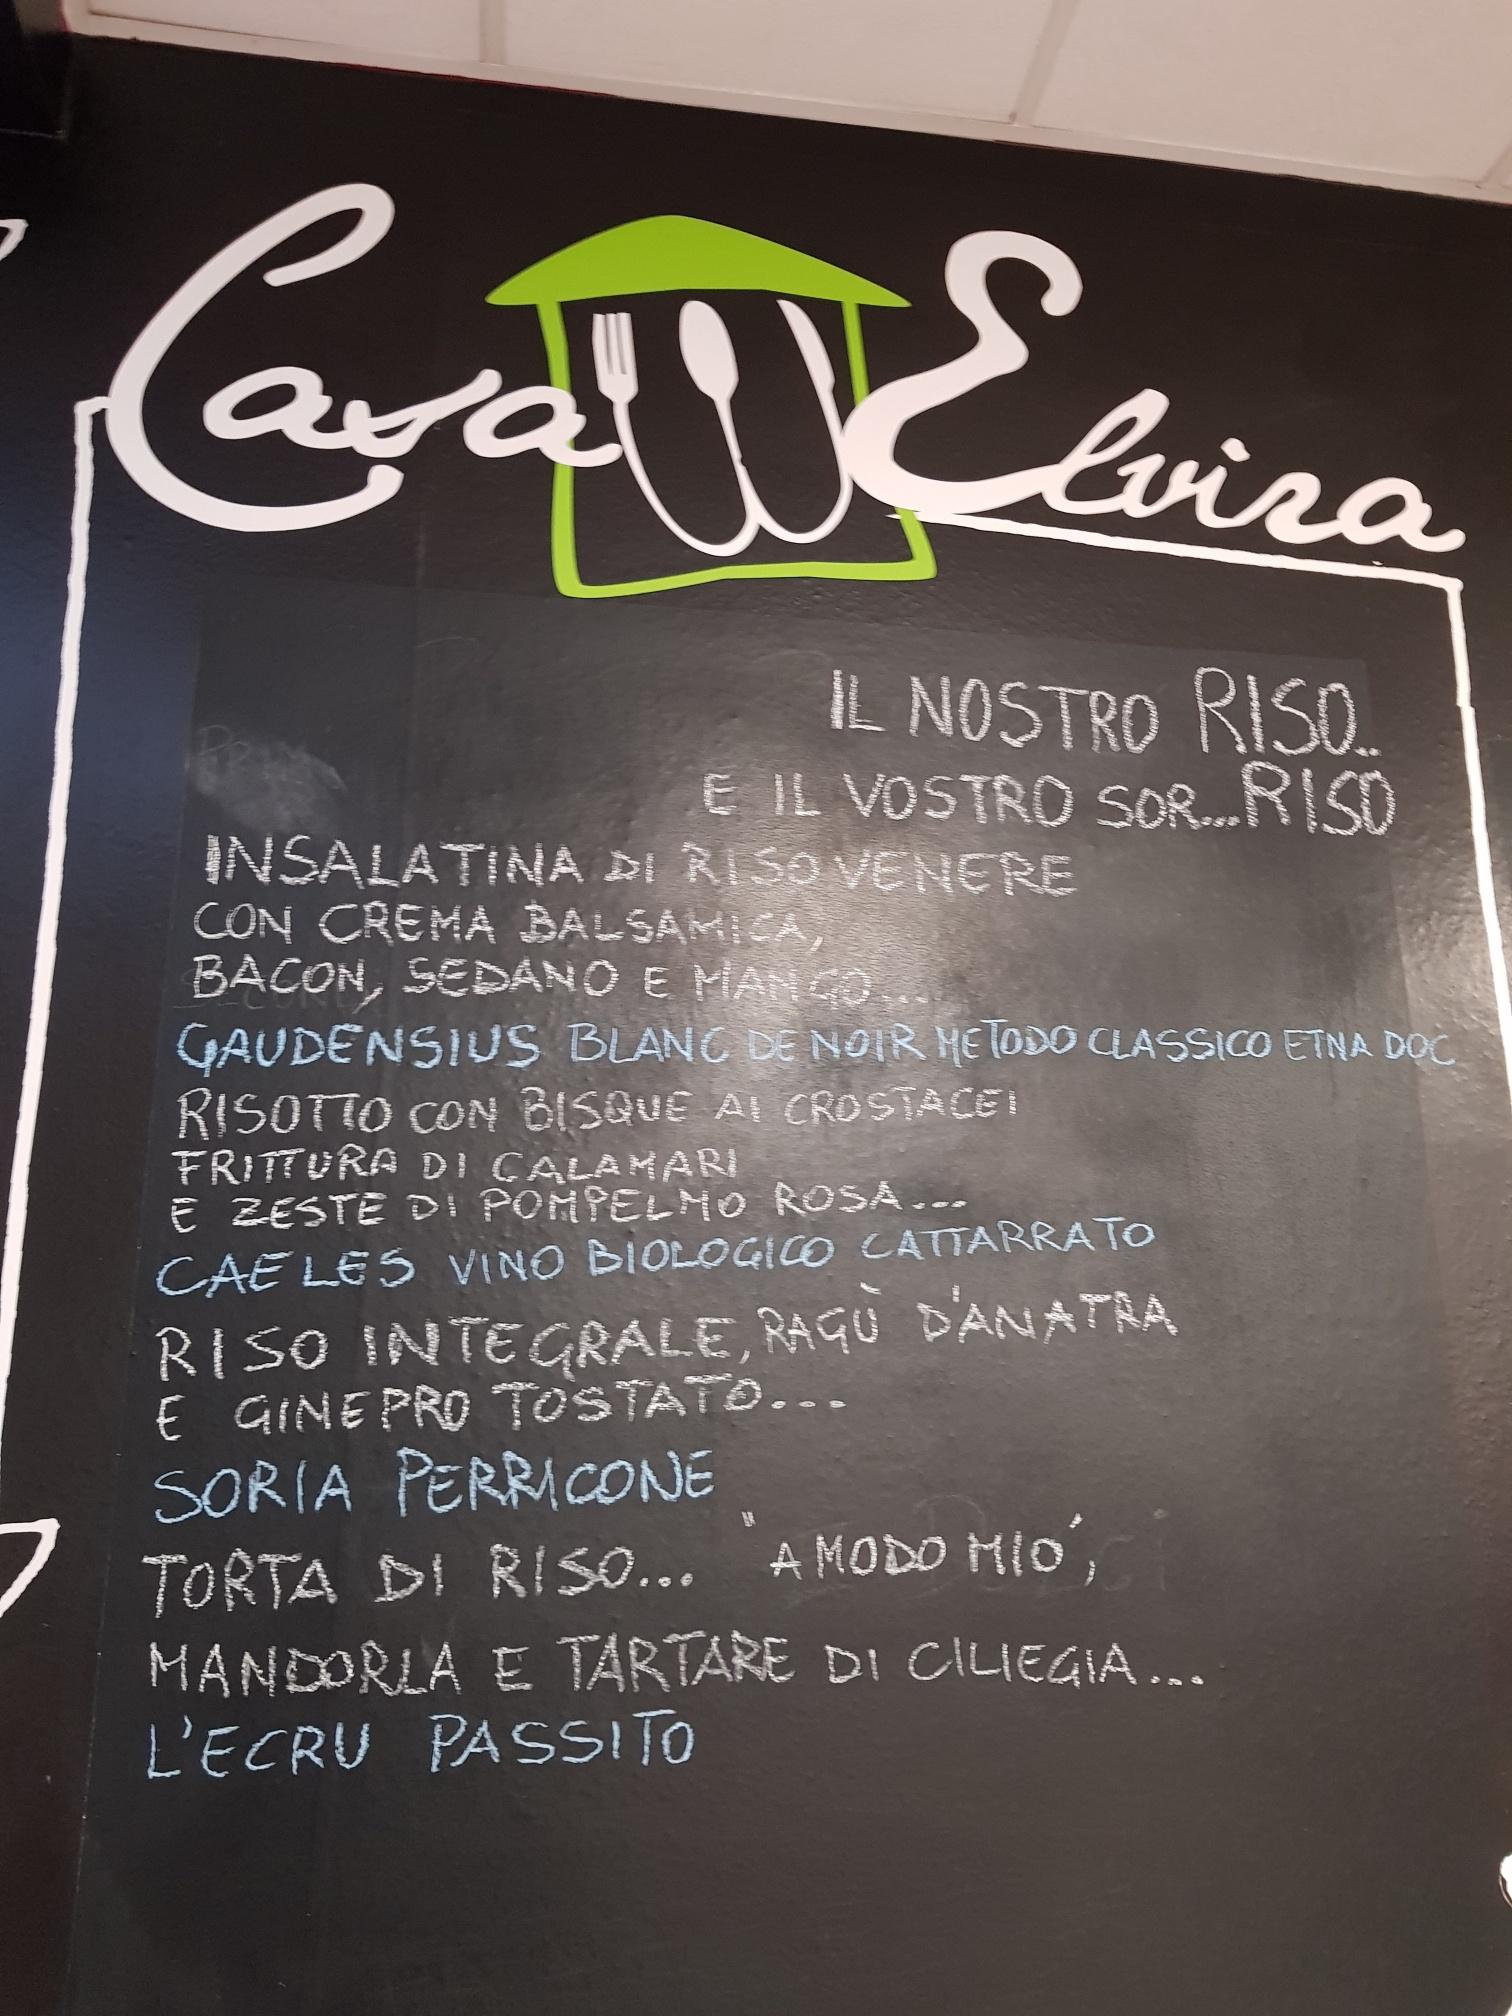 Casa Elvira
IL NOSTRO RISO..
E IL VOSTRO SOR...RISO
INSALATINA DI RISO VENERE
CON CREMA BALSAMICA,
BACON, SEDANO E MANGO...
GAUDENSIUS BLANC DE NOIR METODO CLASSICO ETNA DOC
RISOTTO CON BISQUE AI CROSTACEI
FRITTURA DI CALAMARI
E ZESTE DI POMPELMO ROSA...
CAELES VINO BIOLOGICO CATTARRATO
RISO INTEGRALE, RAGÙ D'ANATRA
E GINEPRO TOSTATO...
SORIA PERRICONE
TORTA DI RISO... "A MODO MIO",
MANDORLA E TARTARE DI CILIEGIA...
L'ECRU PASSITO